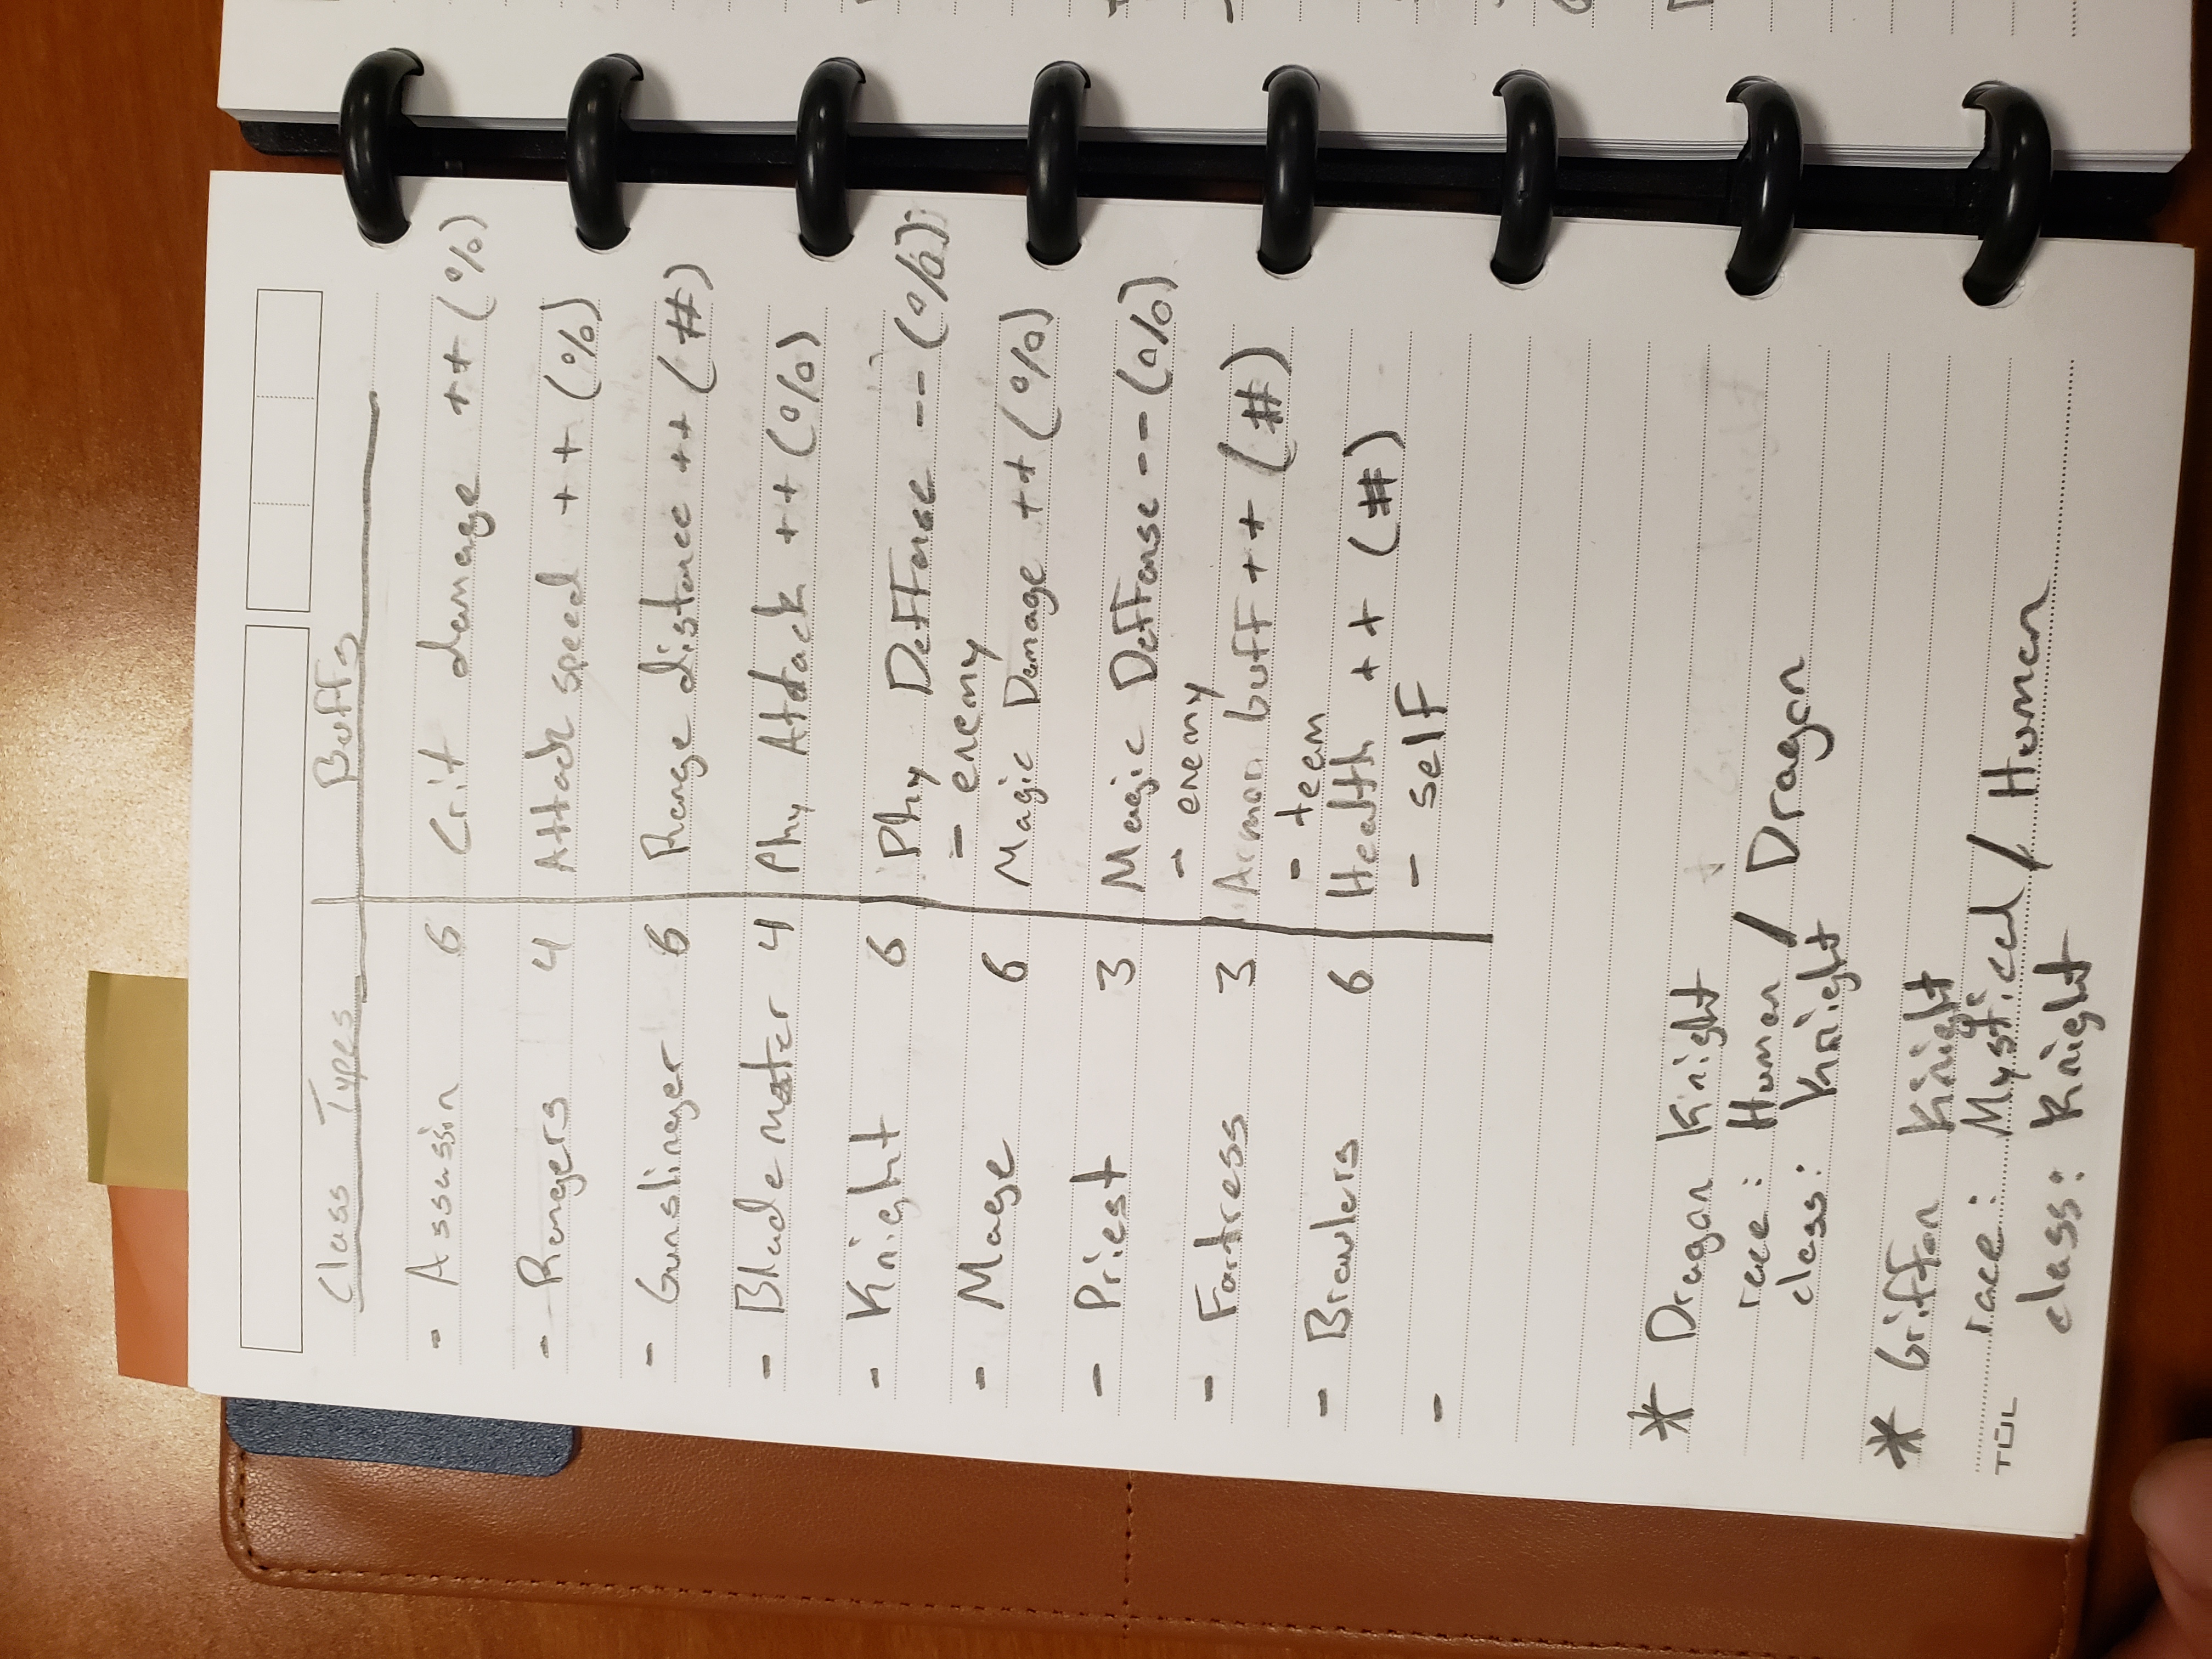 Class Types Buffs
- Assassin 6 Crit damage ++ (%)
- Rangers 4 Attack speed ++ (%)
- Gunslinger 6 Range distance ++ (#)
- Blademaster 4 Phy Attack ++ (%)
- Knight 6 Phy Deffense -- (%)
- enemy
- Mage 6 Magic Damage ++ (%)
- Priest 3 Magic Deffense -- (%)
- enemy
- Fortress 3 Armor buff ++ (#)
- team
- Brawlers 6 Health ++ (#)
- self
-
* Dragon Knight
race: Human / Dragon
class: Knight
* Griffon Knight
race: Mystical / Human
TUL
class: Knight